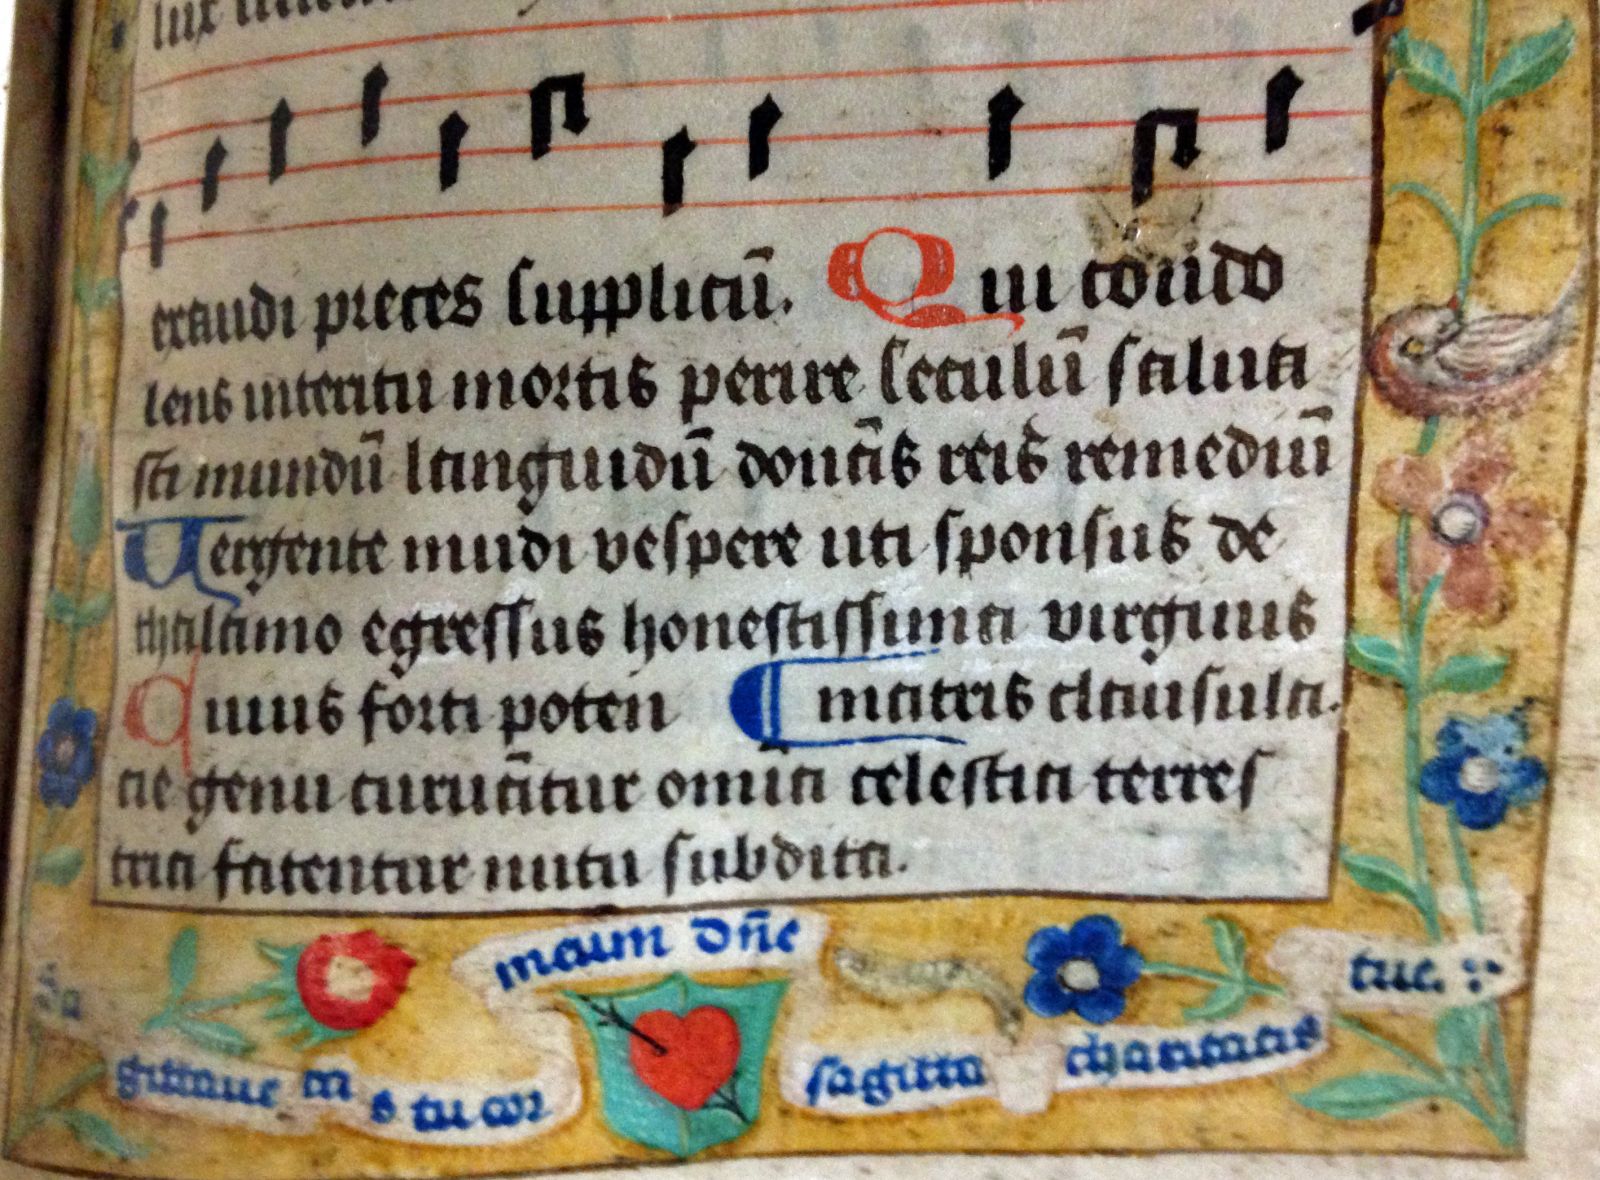 lux
exaudi preces supplicū. Qui condo
lens interitu mortis perire seculū salua
sti mundū languidū donās reis remediū
Uergente mūdi vespere uti sponsus de
thalamo egressus honestissima virginis
Cuius forti poten ¶ matris clausula.
tie genu curuātur omīa celestia terres
tria fatentur nutu subdita.
Sa
gittaue
s tu cor
meum dñe
sagitta charitatis
tue.